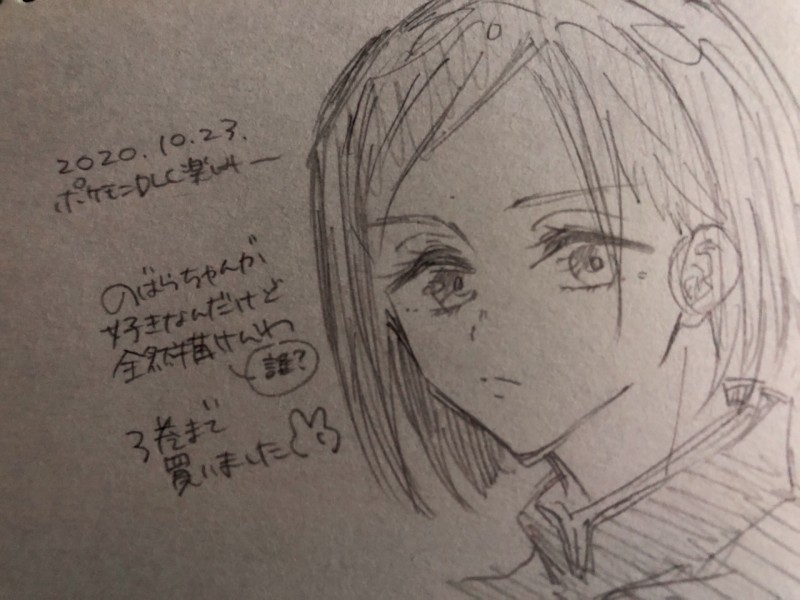 2020.10.23.
ポケモンDLC楽しみー
のばらちゃんが
好きなんだけど
全然描けんわ
誰?
3巻まで
買いました